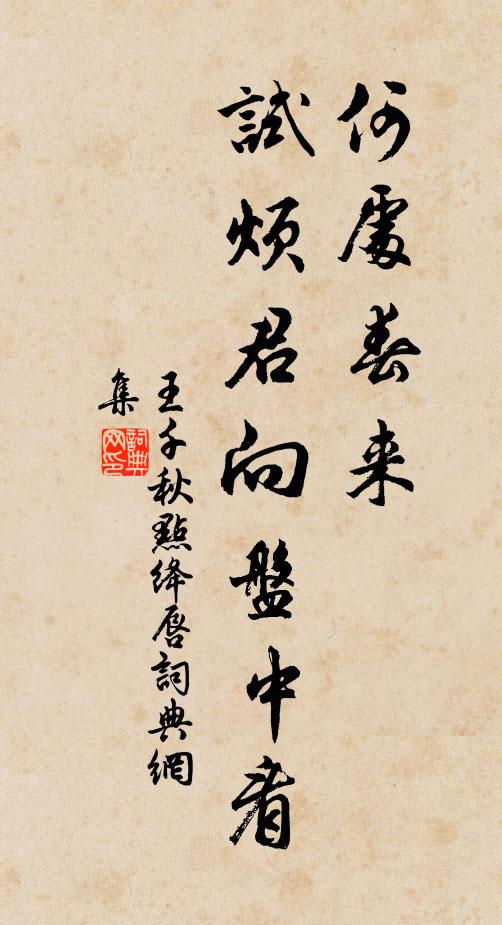 何處春来
試煩君向盤中看
王千秋點绛唇詞典網
集
詞典网印